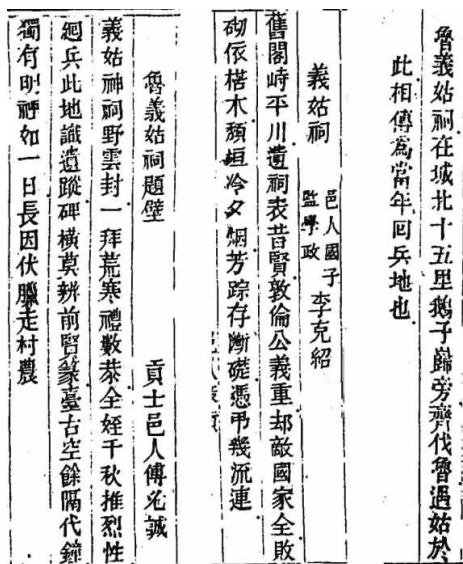 魯義姑祠在城北十五里鵝子巋旁齊伐魯遇姑於
此相傳為當年囘兵地也
義姑祠 邑人國子監學政 李克紹
舊閣峙平川遺祠表昔賢敦倫公義重却敵國家全敗
砌依楛木頽垣冷夕烟芳踪存斷礎憑弔幾流連
魯義姑祠題壁 貢士邑人傅光誠
義姑神祠野雲封一拜荒寒禮數恭全姪千秋推烈性
迴兵此地識遺蹤碑橫莫辨前賢篆臺古空餘隔代鐘
獨有明禋如一日長因伏臘走村農